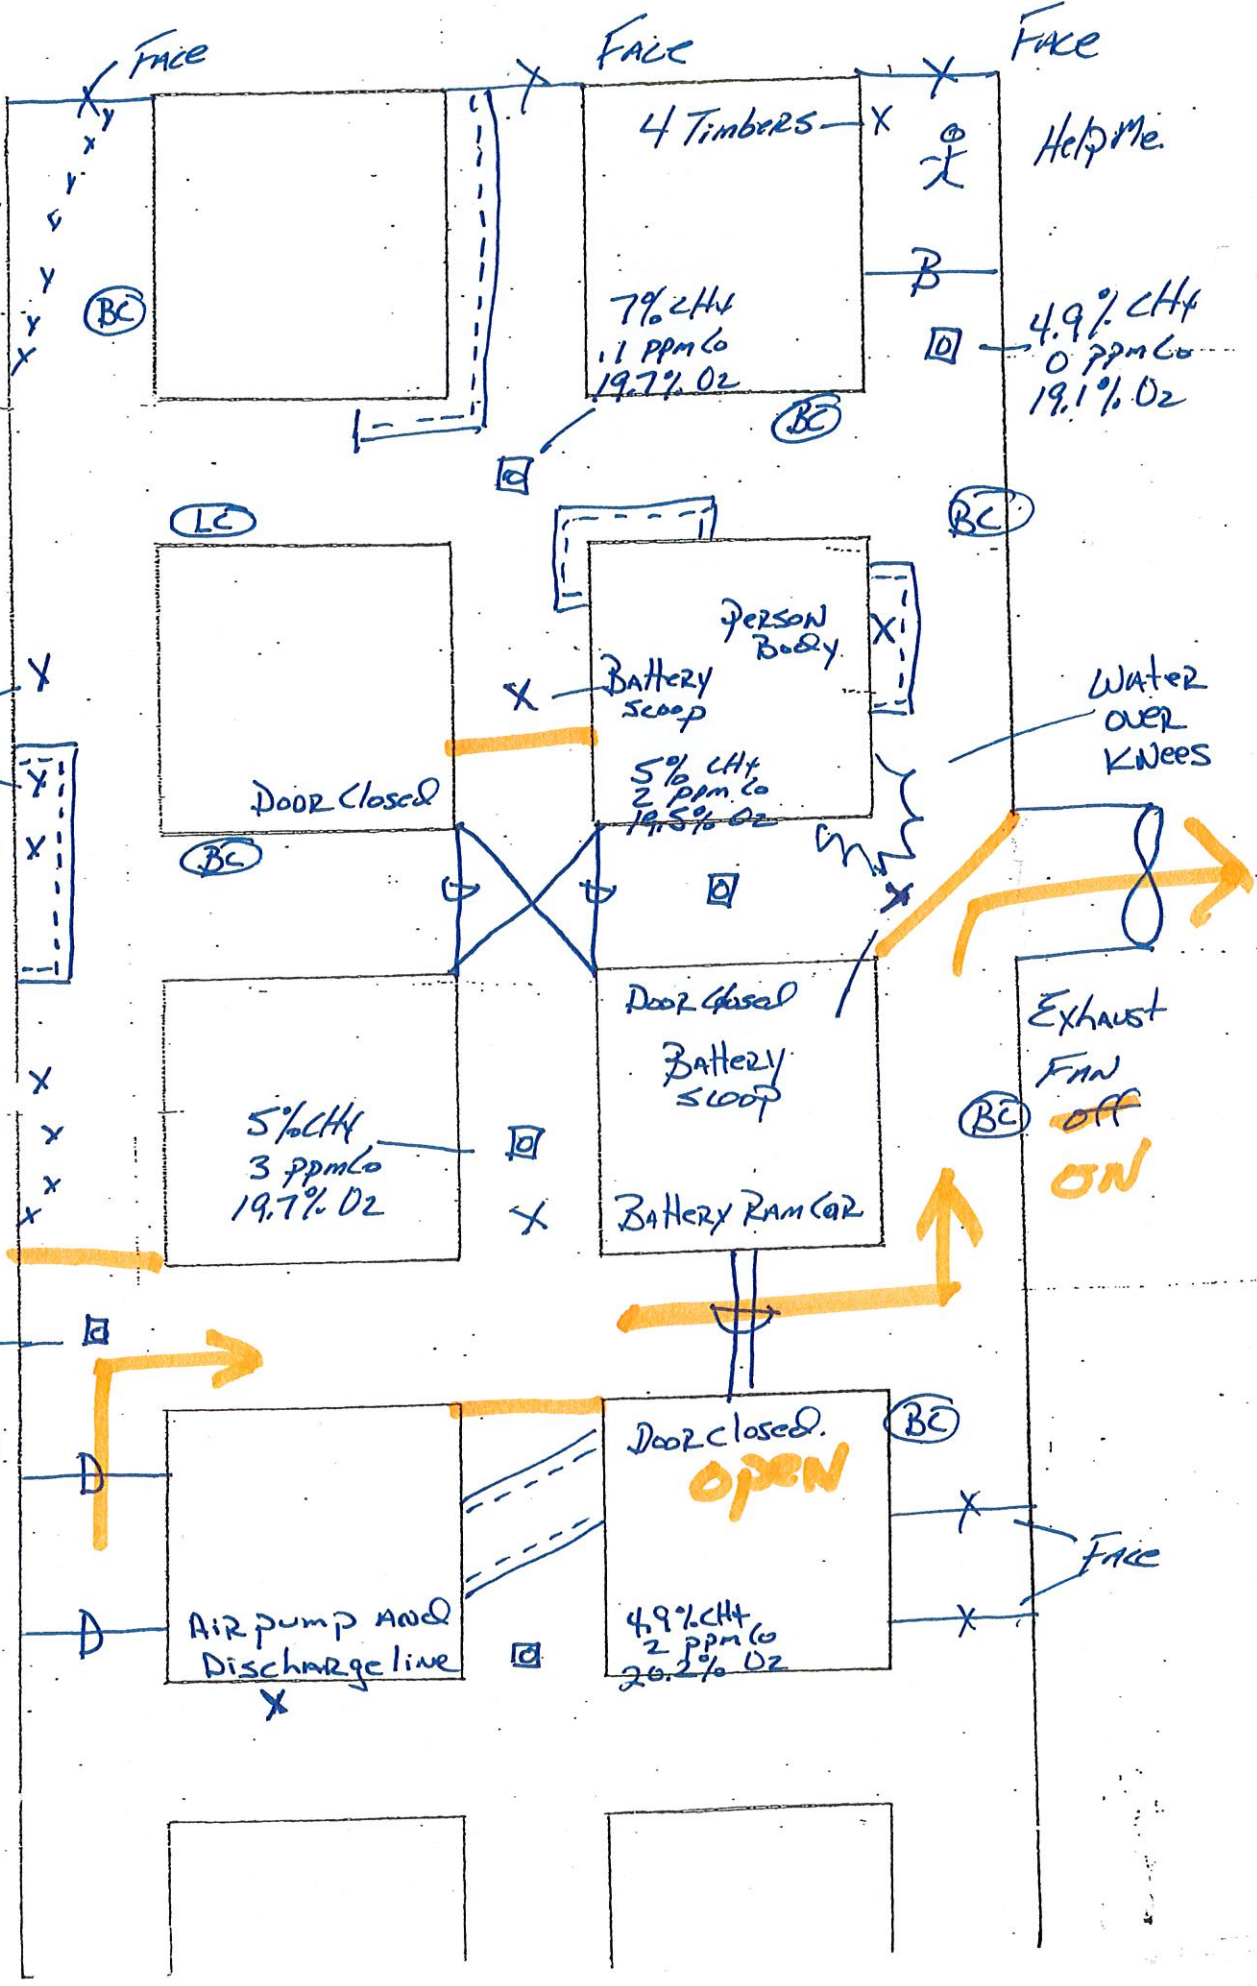 FACE
FACE
FACE
4 TIMBERS
X
Help Me.
B
BC
7% CH4
.1 PPM Co
19.7% O2
4.9% CH4
0 PPM Co
19.1% O2
BC
LC
BC
PERSON
Body
X
X
BATTERY
SCOOP
WATER
OVER
KNEES
5% CH4
2 PPM Co
19.5% O2
DOOR Closed
BC
DOOR Closed
BATTERY
SCOOP
EXHAUST
FAN
off
ON
BC
5% CH4
3 PPM Co
19.7% O2
X
BATTERY RAM CAR
DOOR Closed.
OPEN
BC
D
FACE
D
AIR pump AND
Discharge line
X
4.9% CH4
2 PPM Co
20.2% O2